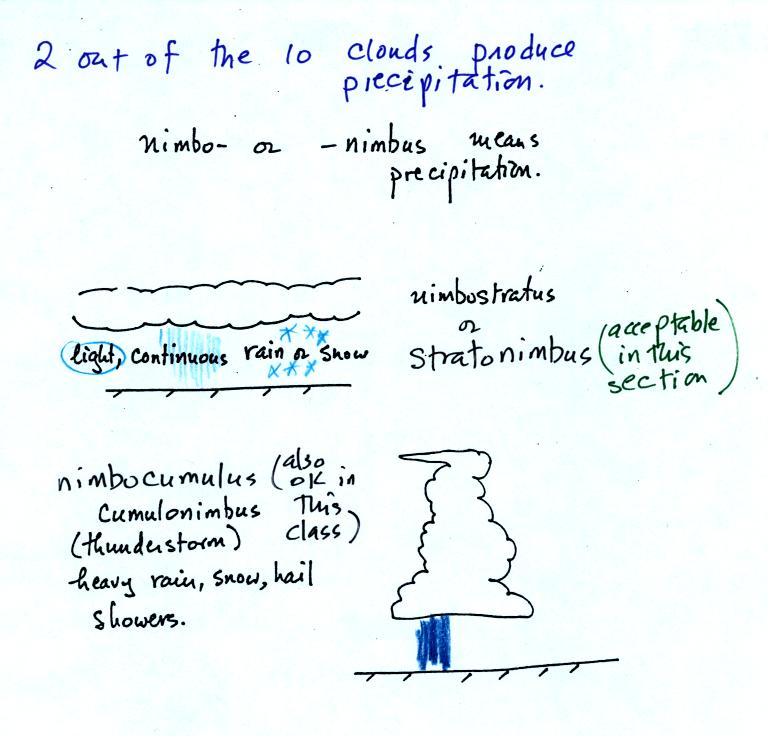 2 out of the 10 clouds produce
precipitation.
nimbo- or -nimbus means
precipitation.
nimbostratus
or
stratonimbus (acceptable
in this
section)
light, continuous rain or snow
nimbocumulus (also
OK in
cumulonimbus this
(thunderstorm) class)
heavy rain, snow, hail
showers.